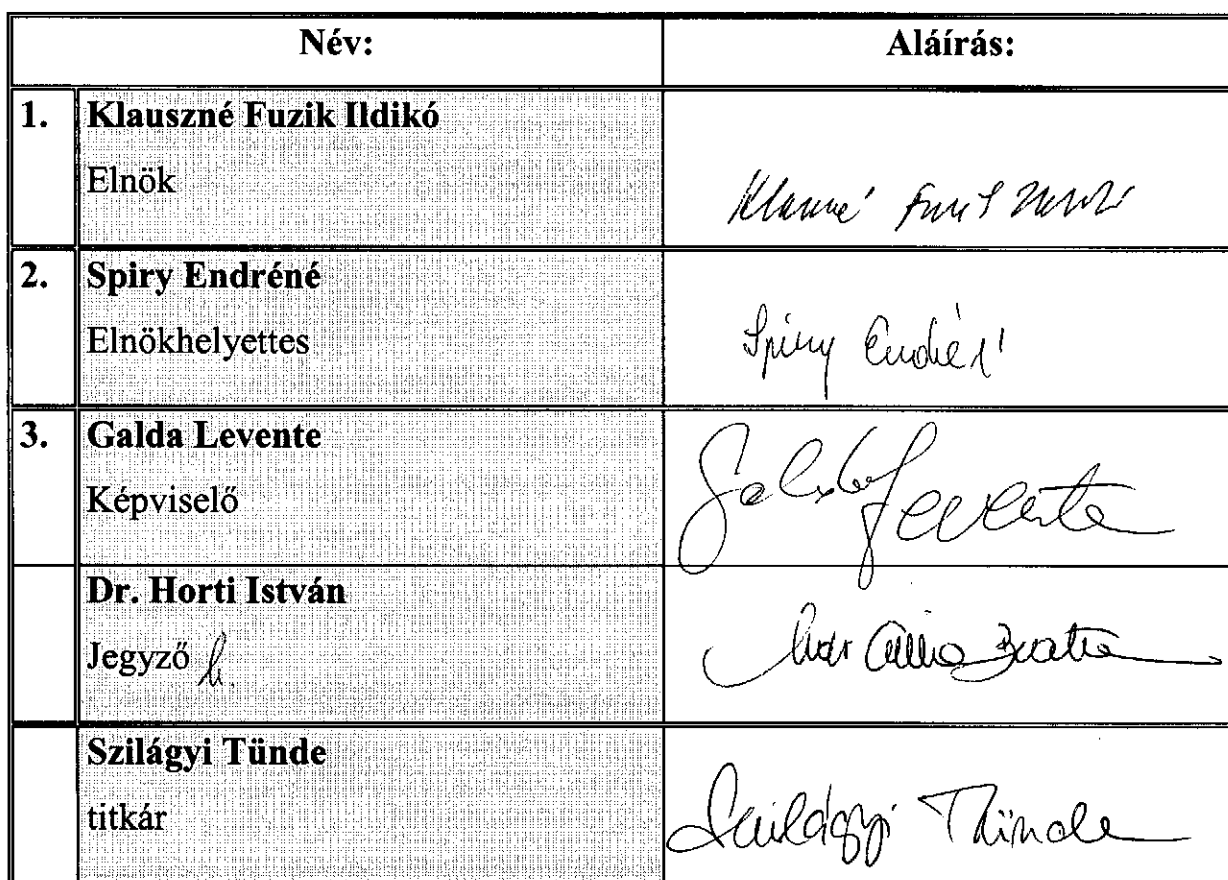 Név: Aláírás:
1. Klauszné Fuzik Ildikó
Elnök
Klauszné Fuzik Ildikó
2. Spiry Endréné
Elnökhelyettes
Spiry Endréné
3. Galda Levente
Képviselő
Galda Levente
Dr. Horti István
Jegyző h.
Szilágyi Tünde
titkár
Szilágyi Tünde